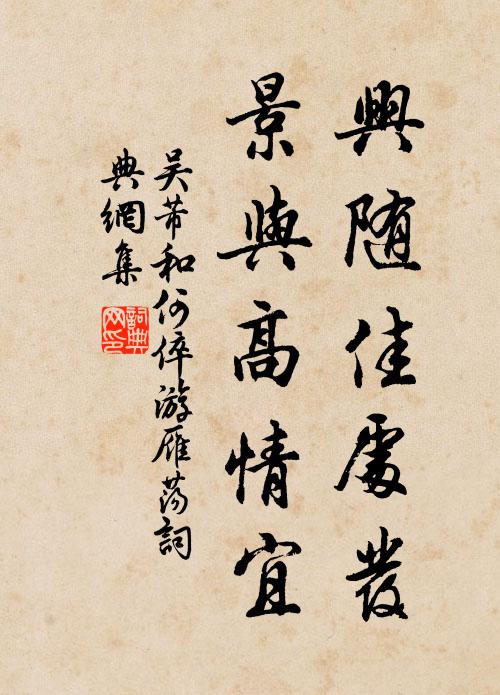 興随佳處發
景與高情宜
吴芾和何倅游雁荡詞
典網集
詞典網印